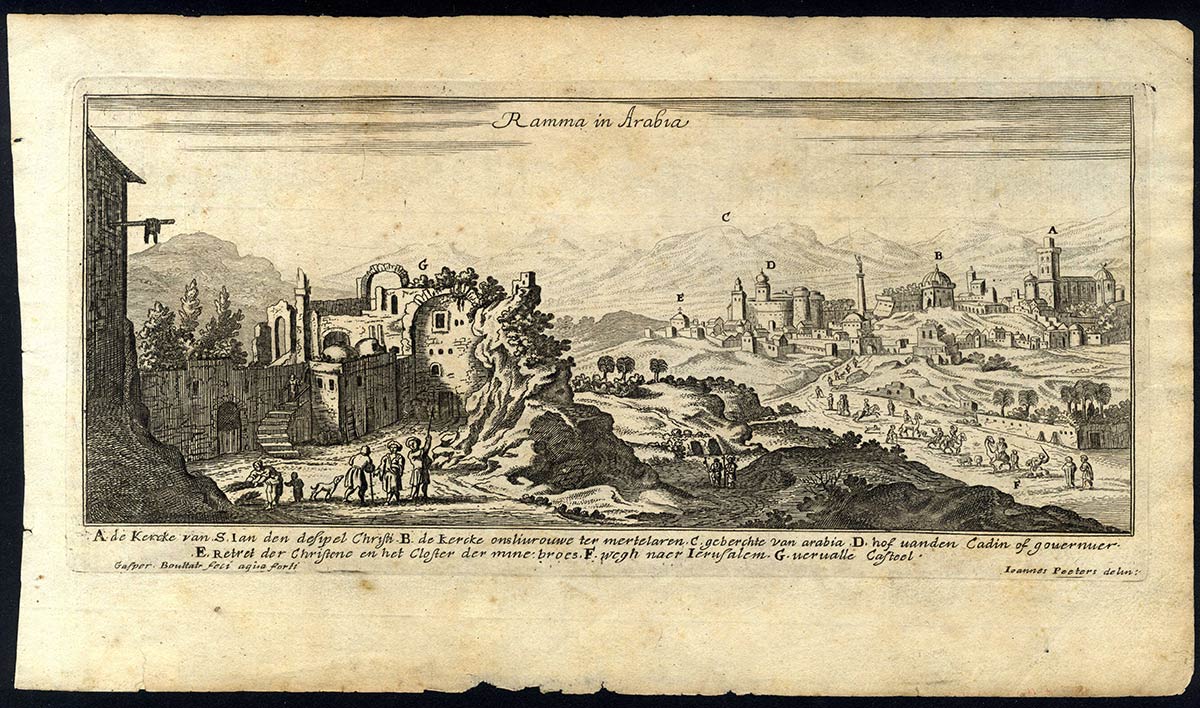 Ramma in Arabia
C
A
G
D
B
E
F
A de Kercke van S. Ian den desipel Christi. B. de kercke onslivrouwe ter mertelaren. C. geberchte van arabia. D. hof vanden Cadin of gouvernuer.
E. Retret der Christene en het Closter der mine broes. F. wegh naer Ierusalem. G. vervalle Casteel.
Gasper. Bouttats feci aqua forti
Ioannes Peeters delin: